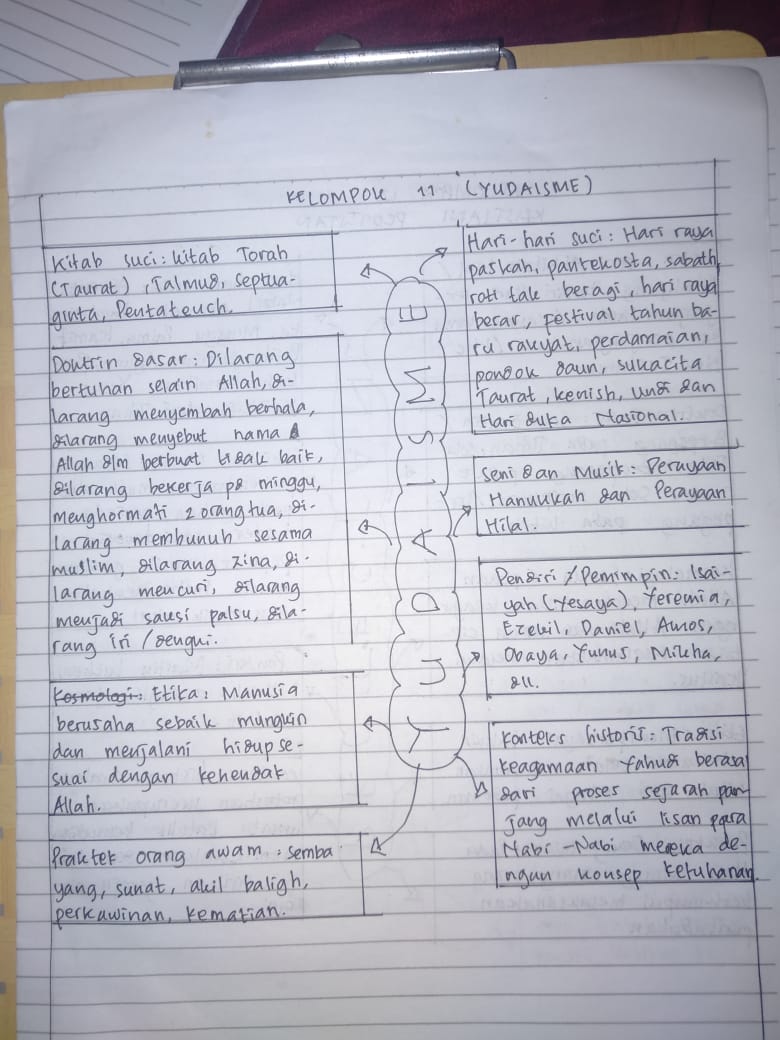 KELOMPOK 11 (YUDAISME)
Kitab suci : kitab Torah
(Taurat), Talmud, septua-
ginta, Pentateuch.
Doktrin dasar : Dilarang
bertuhan selain Allah, di-
larang menyembah berhala,
dilarang menyebut nama
Allah dlm berbuat tidak baik,
dilarang bekerja pd minggu,
menghormati 2 orang tua, di-
larang membunuh sesama
muslim, dilarang zina, di-
larang mencuri, dilarang
menjadi saksi palsu, dila-
rang iri / dengki.
Kosmologi : Etika : Manusia
berusaha sebaik mungkin
dan menjalani hidup se-
suai dengan kehendak
Allah.
Praktek orang awam : semba
yang, sunat, akil baligh,
perkawinan, kematian.
YUDAISME
Hari-hari suci : Hari raya
paskah, pantekosta, sabath,
roti tak beragi, hari raya
besar, festival tahun ba-
ru rakyat, perdamaian,
pondok daun, sukacita
Taurat, kenish, undi dan
Hari duka Nasional.
Seni dan Musik : Perayaan
Hanukkah dan Perayaan
Hilal.
Pendiri / Pemimpin : Isai-
yah (Yesaya), Yeremia,
Ezekil, Daniel, Amos,
Obaya, Yunus, Mikha,
dll.
Konteks historis : Tradisi
keagamaan Yahudi berasal
dari proses sejarah pan
jang melalui lisan para
Nabi-Nabi mereka de-
ngan konsep ketuhanan.